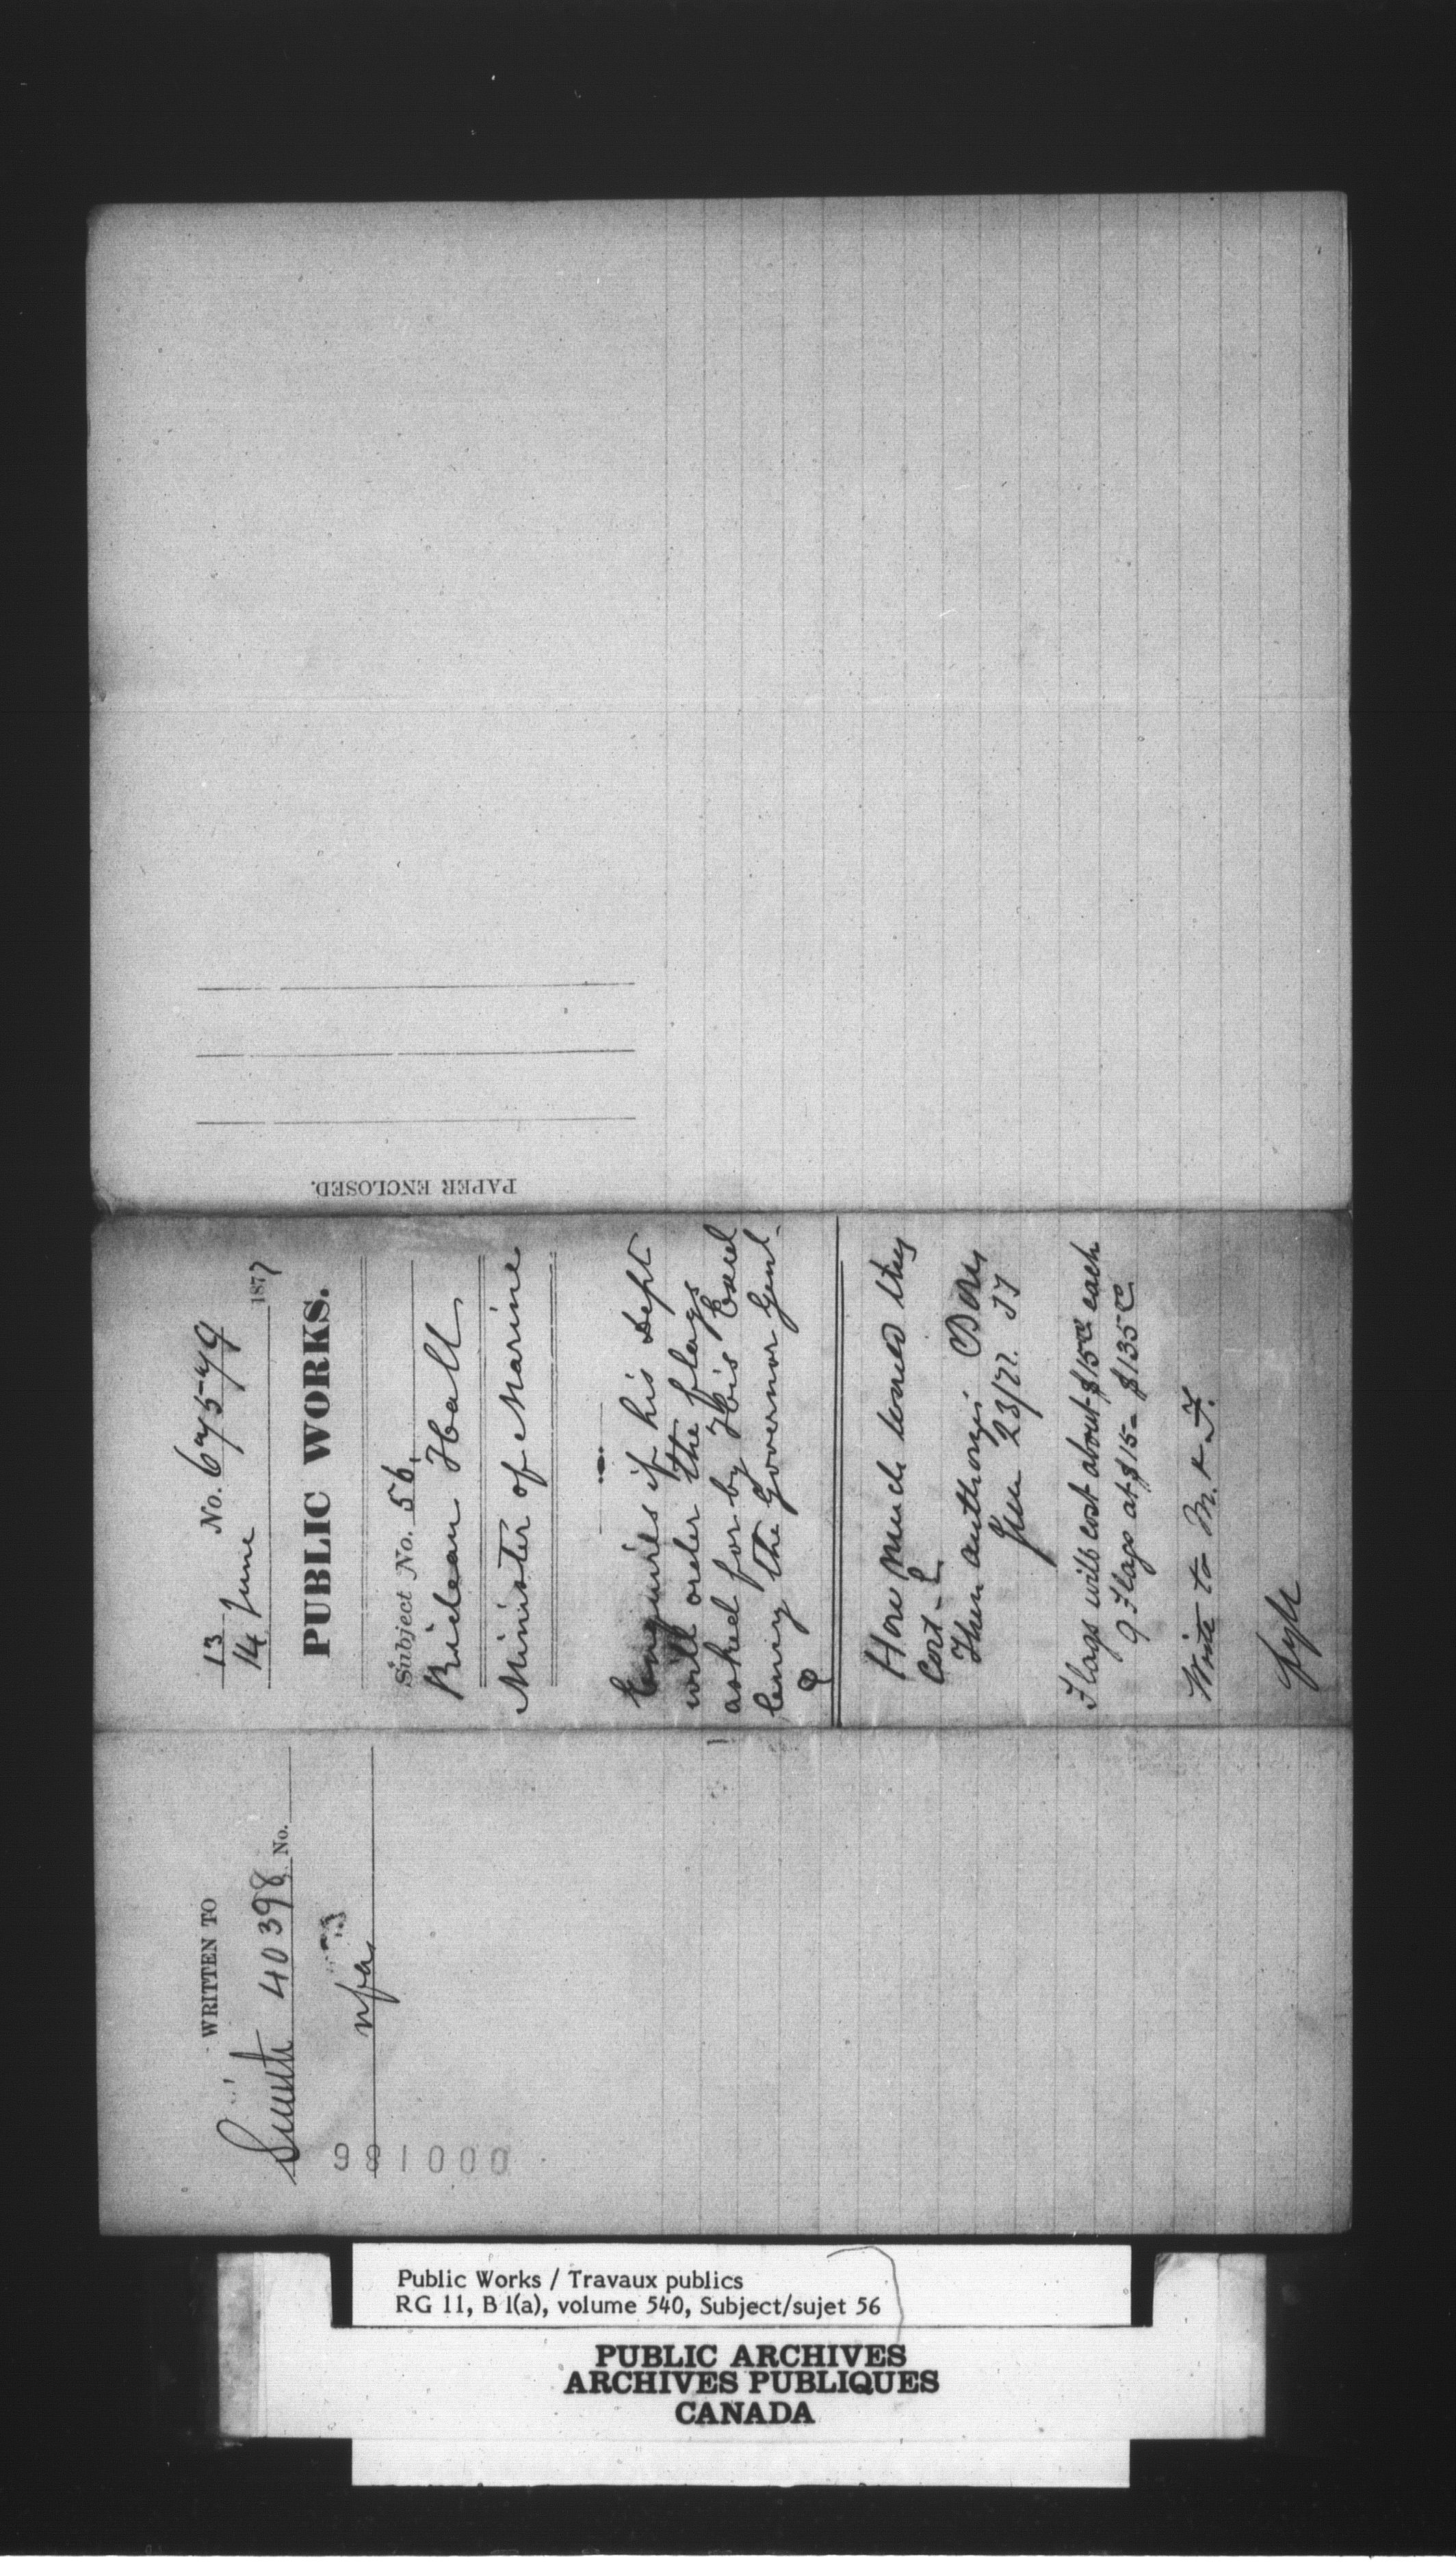 13
14 June No. 67579 1877
PUBLIC WORKS.
Subject No. 56.
Rideau Hall
Minister of Marine
Enquires if his Dept
will order the flags
asked for by His Excel
lency the Governor Genl.
How much would they
Cost -
Then authorize
June 23/77.
Flags will cost about $15 each
9 Flags at $15 - $135
Write to M. & F.
WRITTEN TO
Smith 40398 No.
nfa
981000
PAPER ENCLOSED.
Public Works / Travaux publics
RG 11, B 1(a), volume 540, Subject/sujet 56
PUBLIC ARCHIVES
ARCHIVES PUBLIQUES
CANADA